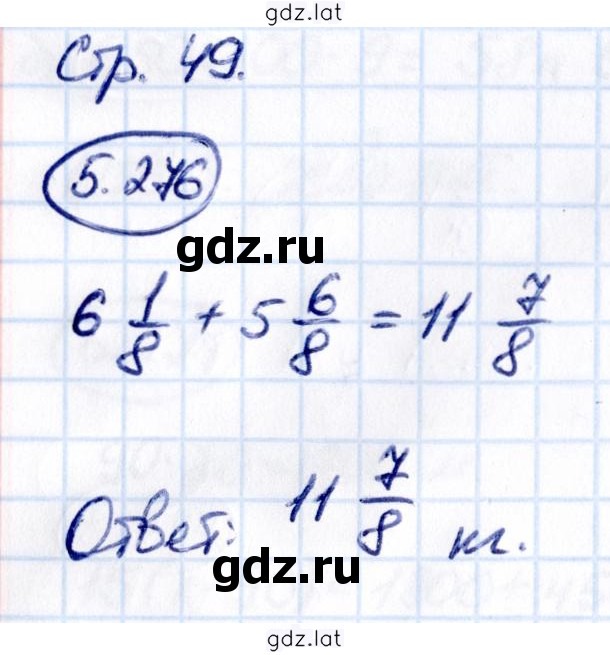 gdz.lat
Стр. 49.
5.276
gdz.ru
6 1/8 + 5 6/8 = 11 7/8
Ответ: 11 7/8 кг.
gdz.ru
gdz.lat